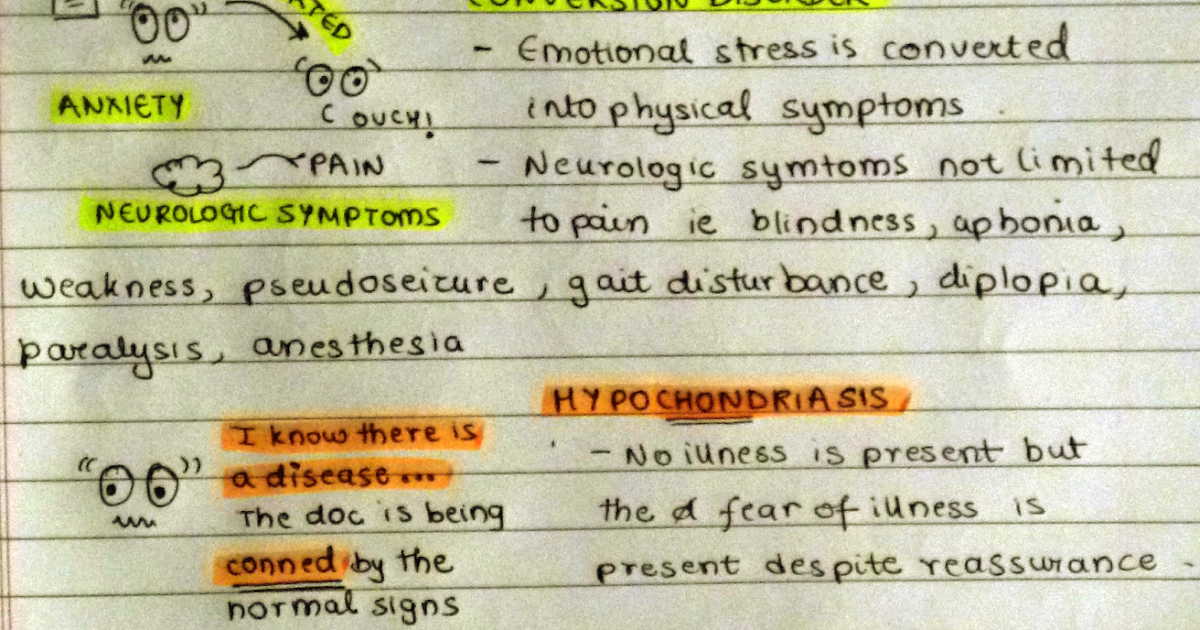 CONVERSION DISORDER
- Emotional stress is converted
into physical symptoms.
ANXIETY
OUCH!
PAIN
- Neurologic symtoms not limited
NEUROLOGIC SYMPTOMS
to pain ie blindness, aphonia,
weakness, pseudoseizure, gait disturbance, diplopia,
paralysis, anesthesia
HYPOCHONDRIASIS
I know there is
a disease...
The doc is being
conned by the
normal signs
- No illness is present but
the fear of illness is
present despite reassurance.